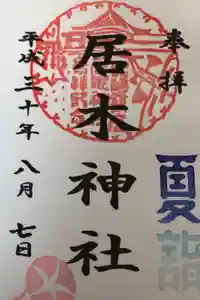 奉拝
居木神社
平成三十年八月七日
夏詣